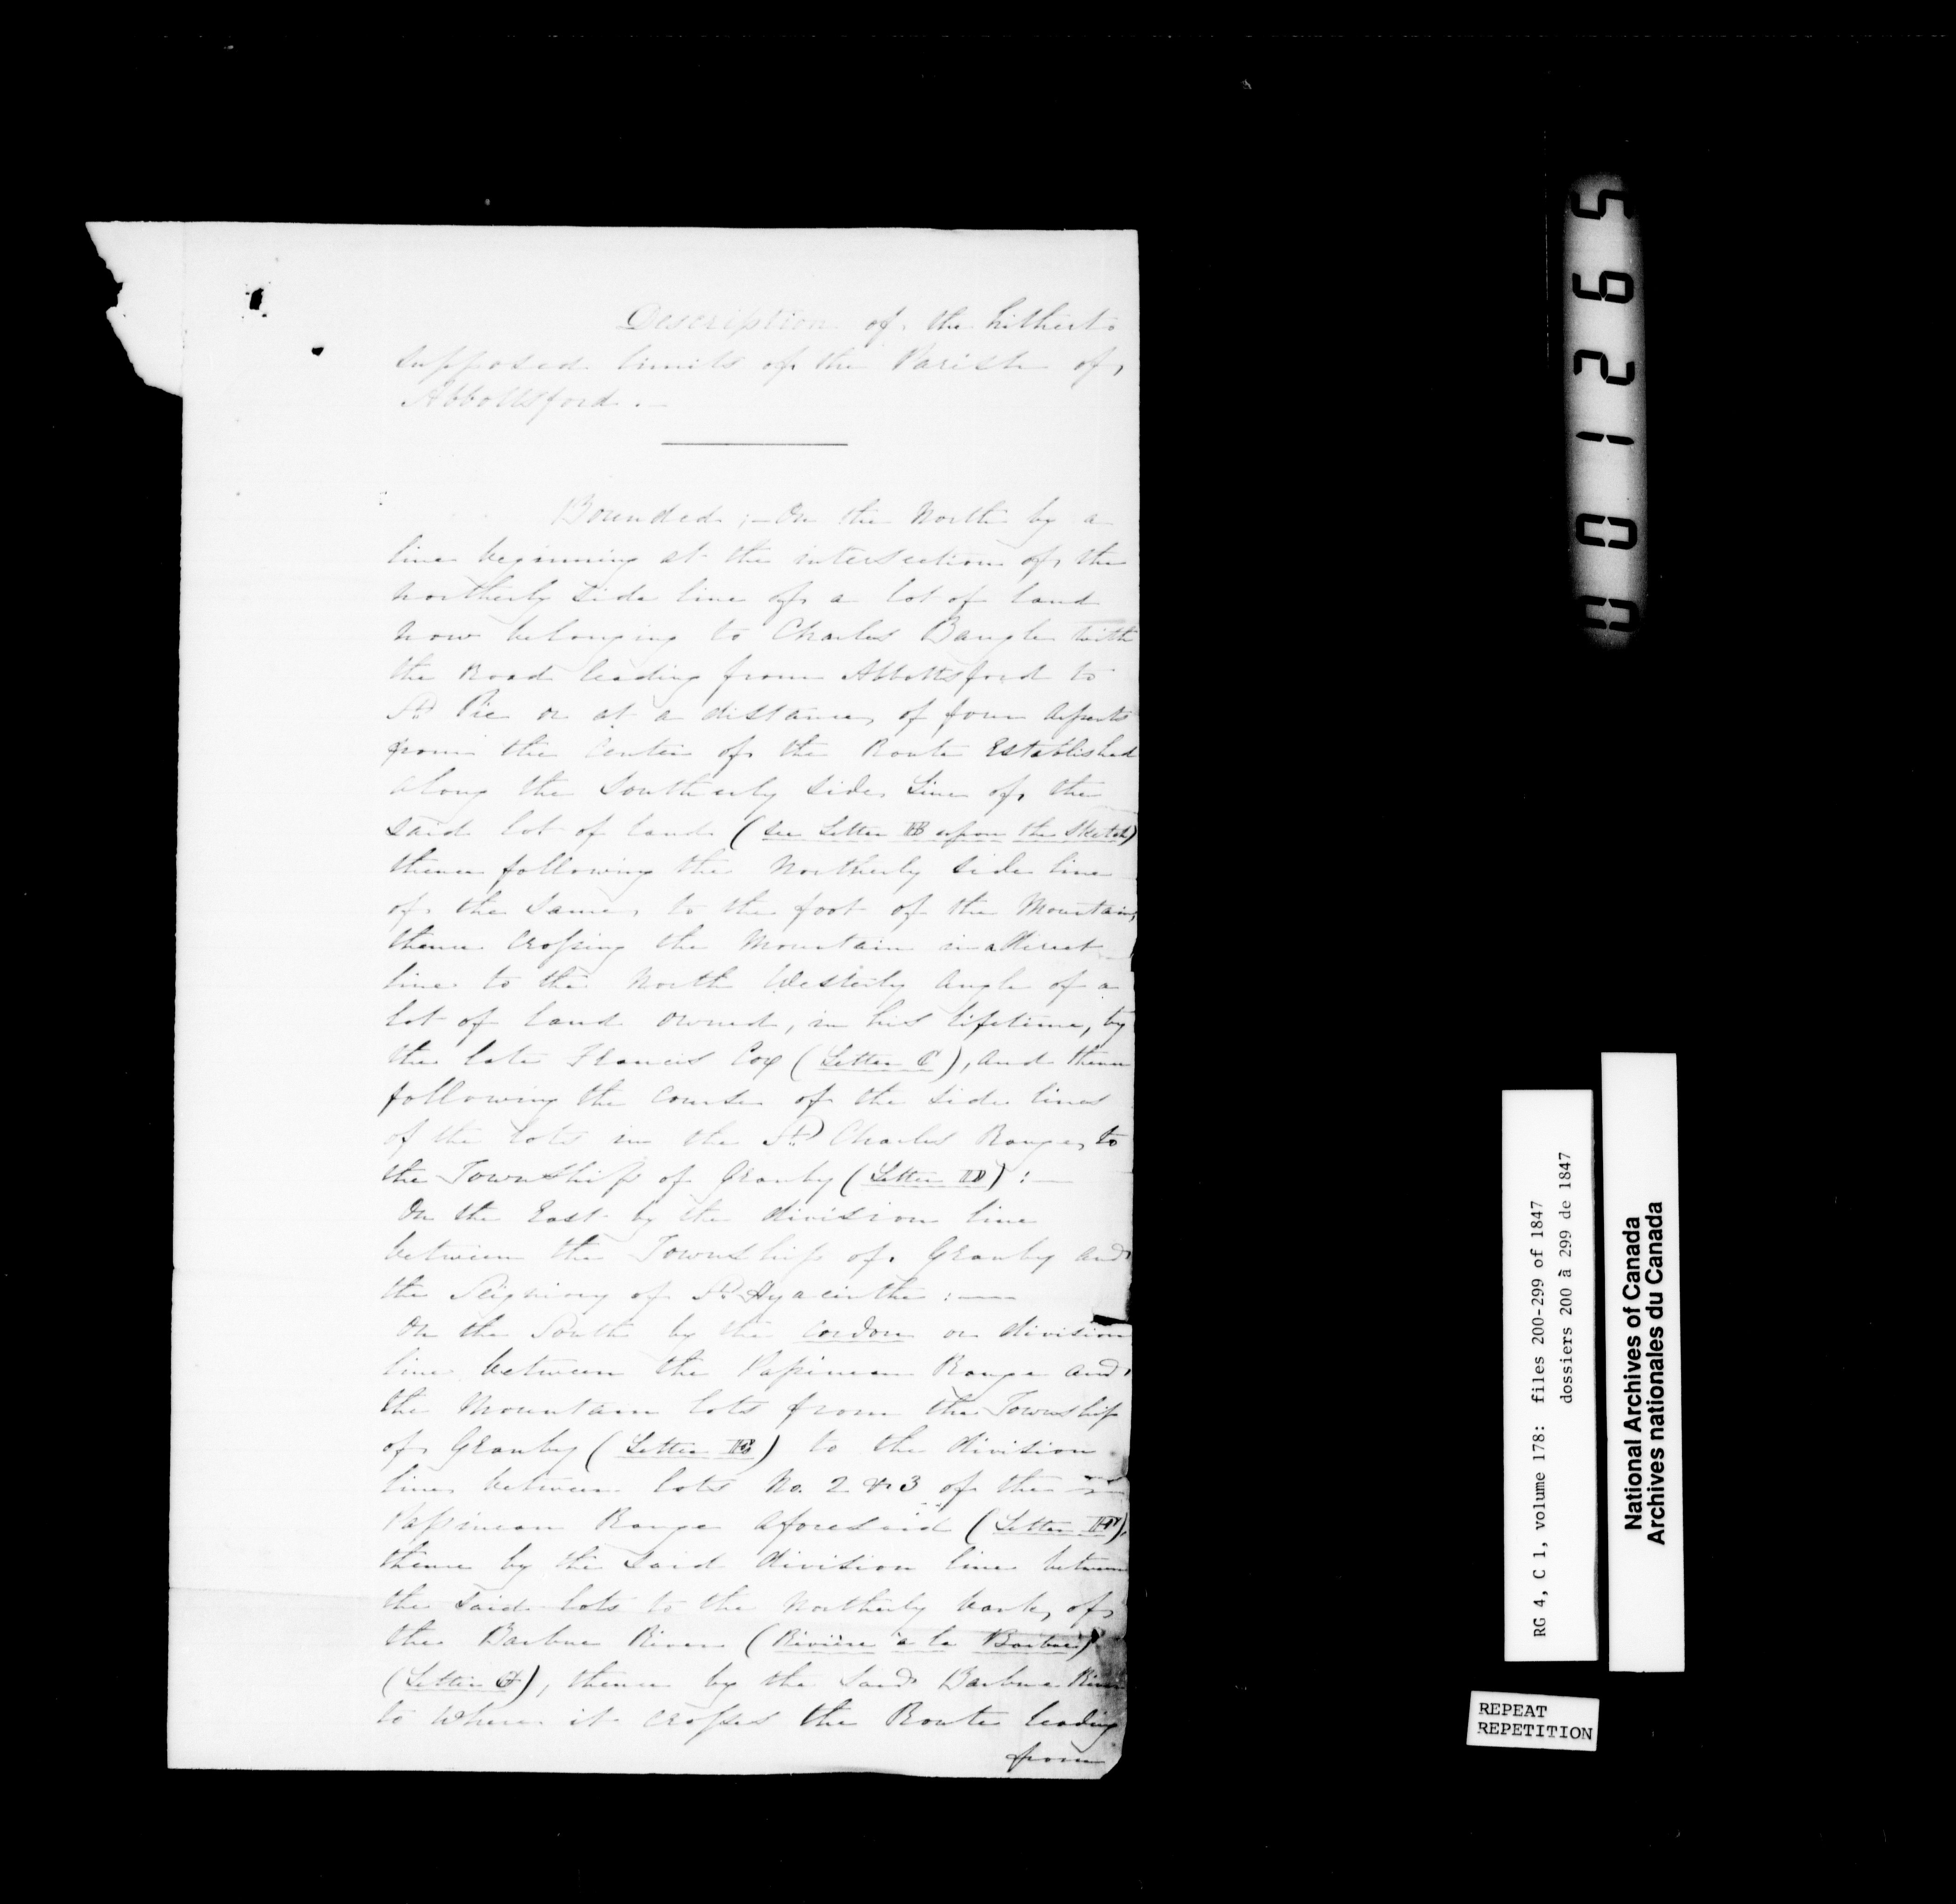 Description of the hitherto
supposed limits of the Parish of
Abbottsford.—
Bounded;—On the North by a
line beginning at the intersection of the
Northerly side line of a lot of land
now belonging to Charles Bangle with
the Road leading from Abbottsford to
St. Pie or at a distance of four Arpents
from the Center of the Route Established
along the Southerly side Line of the
said lot of land (see Letter B upon the Sketch)
thence following the Northerly side line
of the same, to the foot of the Mountain,
thence crossing the Mountain in a direct
line to the North Westerly Angle of a
lot of land owned, in his lifetime, by
the late Francis Cox (Letter C), and thence
following the course of the side lines
of the lots in the St. Charles Range, to
the Township of Granby (Letter D):—
On the East by the division line
between the Township of Granby and
the Seigniory of St. Hyacinthe:—
On the South by the cordon or division
line between the Papineau Range and
the Mountain lots from the Township
of Granby (Letter E) to the division
line between lots No. 2 & 3 of the
Papineau Range aforesaid (Letter F),
thence by the said division line between
the said lots to the Northerly bank of
the Barbue River (Rivière à la Barbue)
(Letter G), thence by the said Barbue River
to where it crosses the Route leading
from
001265
RG 4, C 1, volume 178: files 200-299 of 1847
dossiers 200 à 299 de 1847
National Archives of Canada
Archives nationales du Canada
REPEAT
REPETITION